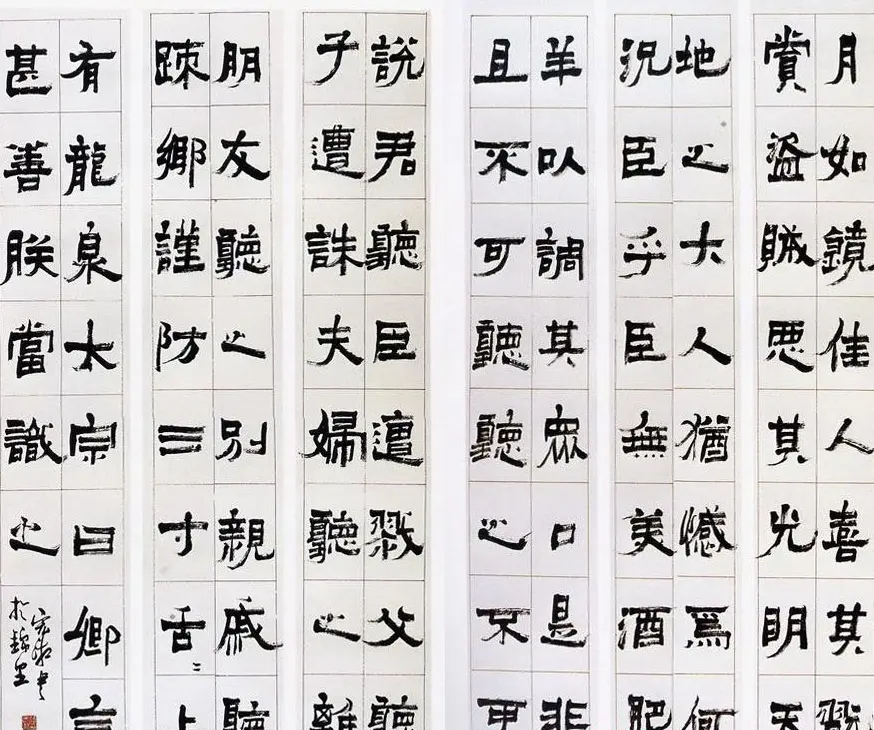 月如鏡佳人喜其翫
賞盜賊惡其光明天
地之大人猶憾焉何
況臣乎臣無美酒肥
羊以調其眾口是非
且不可聽聽之不可
說君聽臣遭戮父聽
子遭誅夫婦聽之離
朋友聽之別親戚聽
疎鄉謹防三寸舌〻上
有龍泉太宗曰卿言
甚善朕當識之